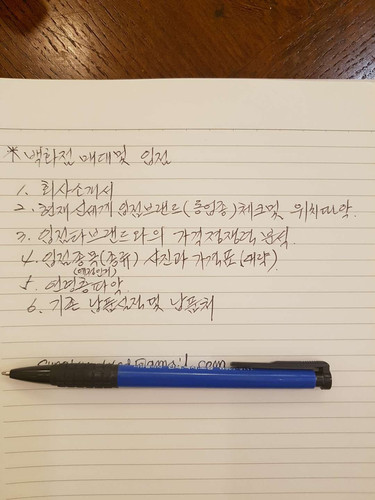 * 백화점 매대및 입점
1. 회사소개서
2. 현재 신세계 입점브랜드(동업종) 체크및 위치파악.
3. 입점타브랜드와의 가격경쟁력 분석.
4. 입점종목(종류) 사진과 가격표(대략)
(예정인기)
5. 연령층파악.
6. 기존 납품실적및 납품처
@gmail.com